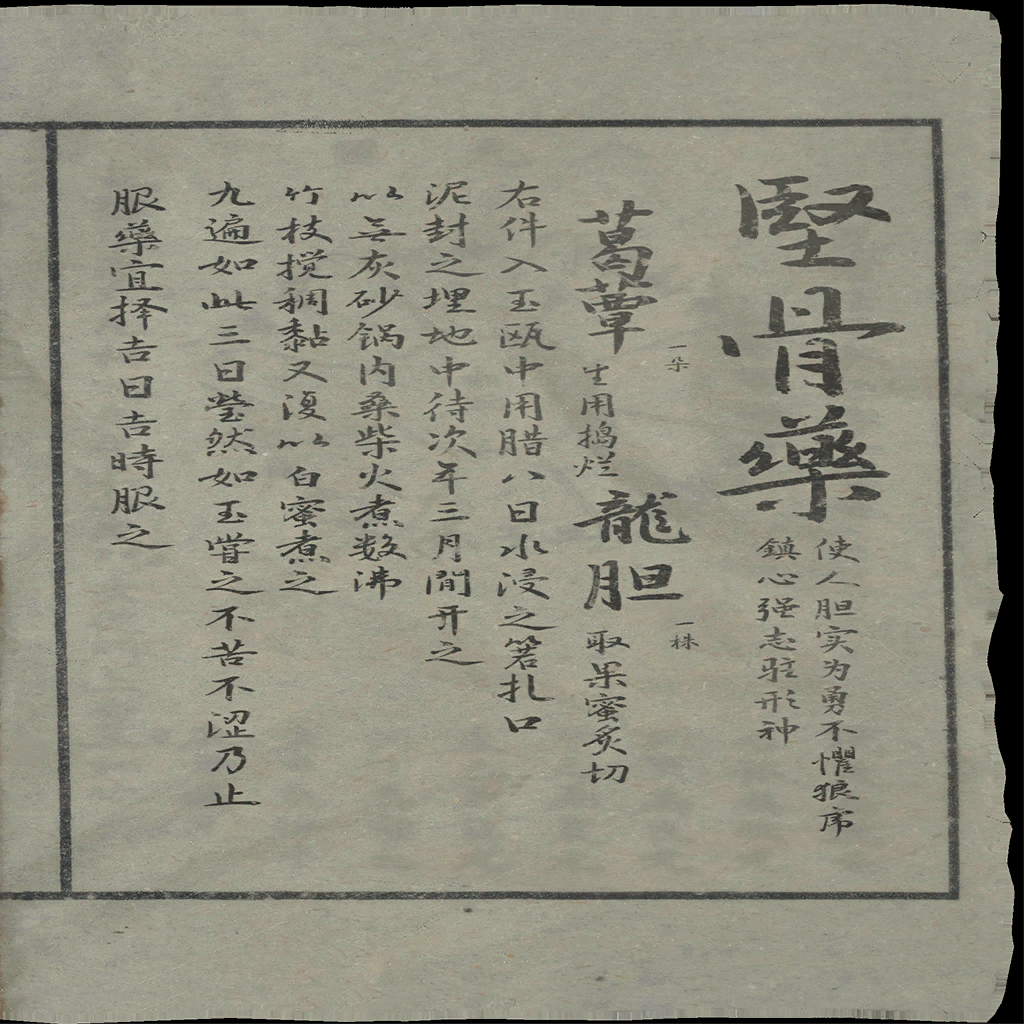 堅骨藥
使人胆实为勇不懼狼虎
鎮心强志驻形神
葛蕈 一朵 生用捣烂 龍胆 一株 取果蜜炙切
右件入玉瓯中用腊八日水浸之箬扎口
泥封之埋地中待次年三月間开之
以無灰砂锅内桑柴火煮数沸
竹枝搅稠黏又復以白蜜煮之
九遍如此三日瑩然如玉嘗之不苦不涩乃止
服藥宜择吉日吉時服之